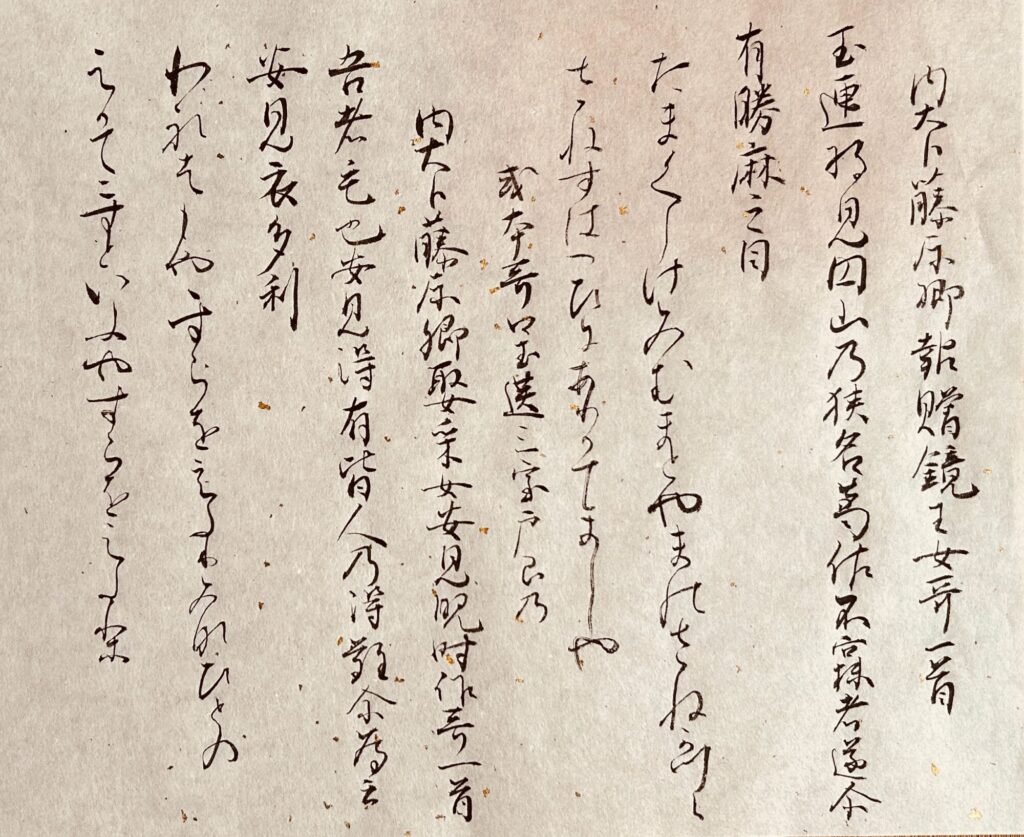 内大卜藤原卿報贈鏡王女哥一首
玉匣将見円山乃狭名葛佐不寐者遂尓
有勝麻之目
たまくしけみむまとやまのさねかつら
さねすはつひにありかてましや
或本哥曰玉匣三室戸山乃
内大卜藤原卿娶采女安見児時作哥一首
吾者毛也安見得有皆人乃得難尓為云
安見衣多利
われはもややすみこをえたりみなひとの
えかてにすといふやすみこをえたり